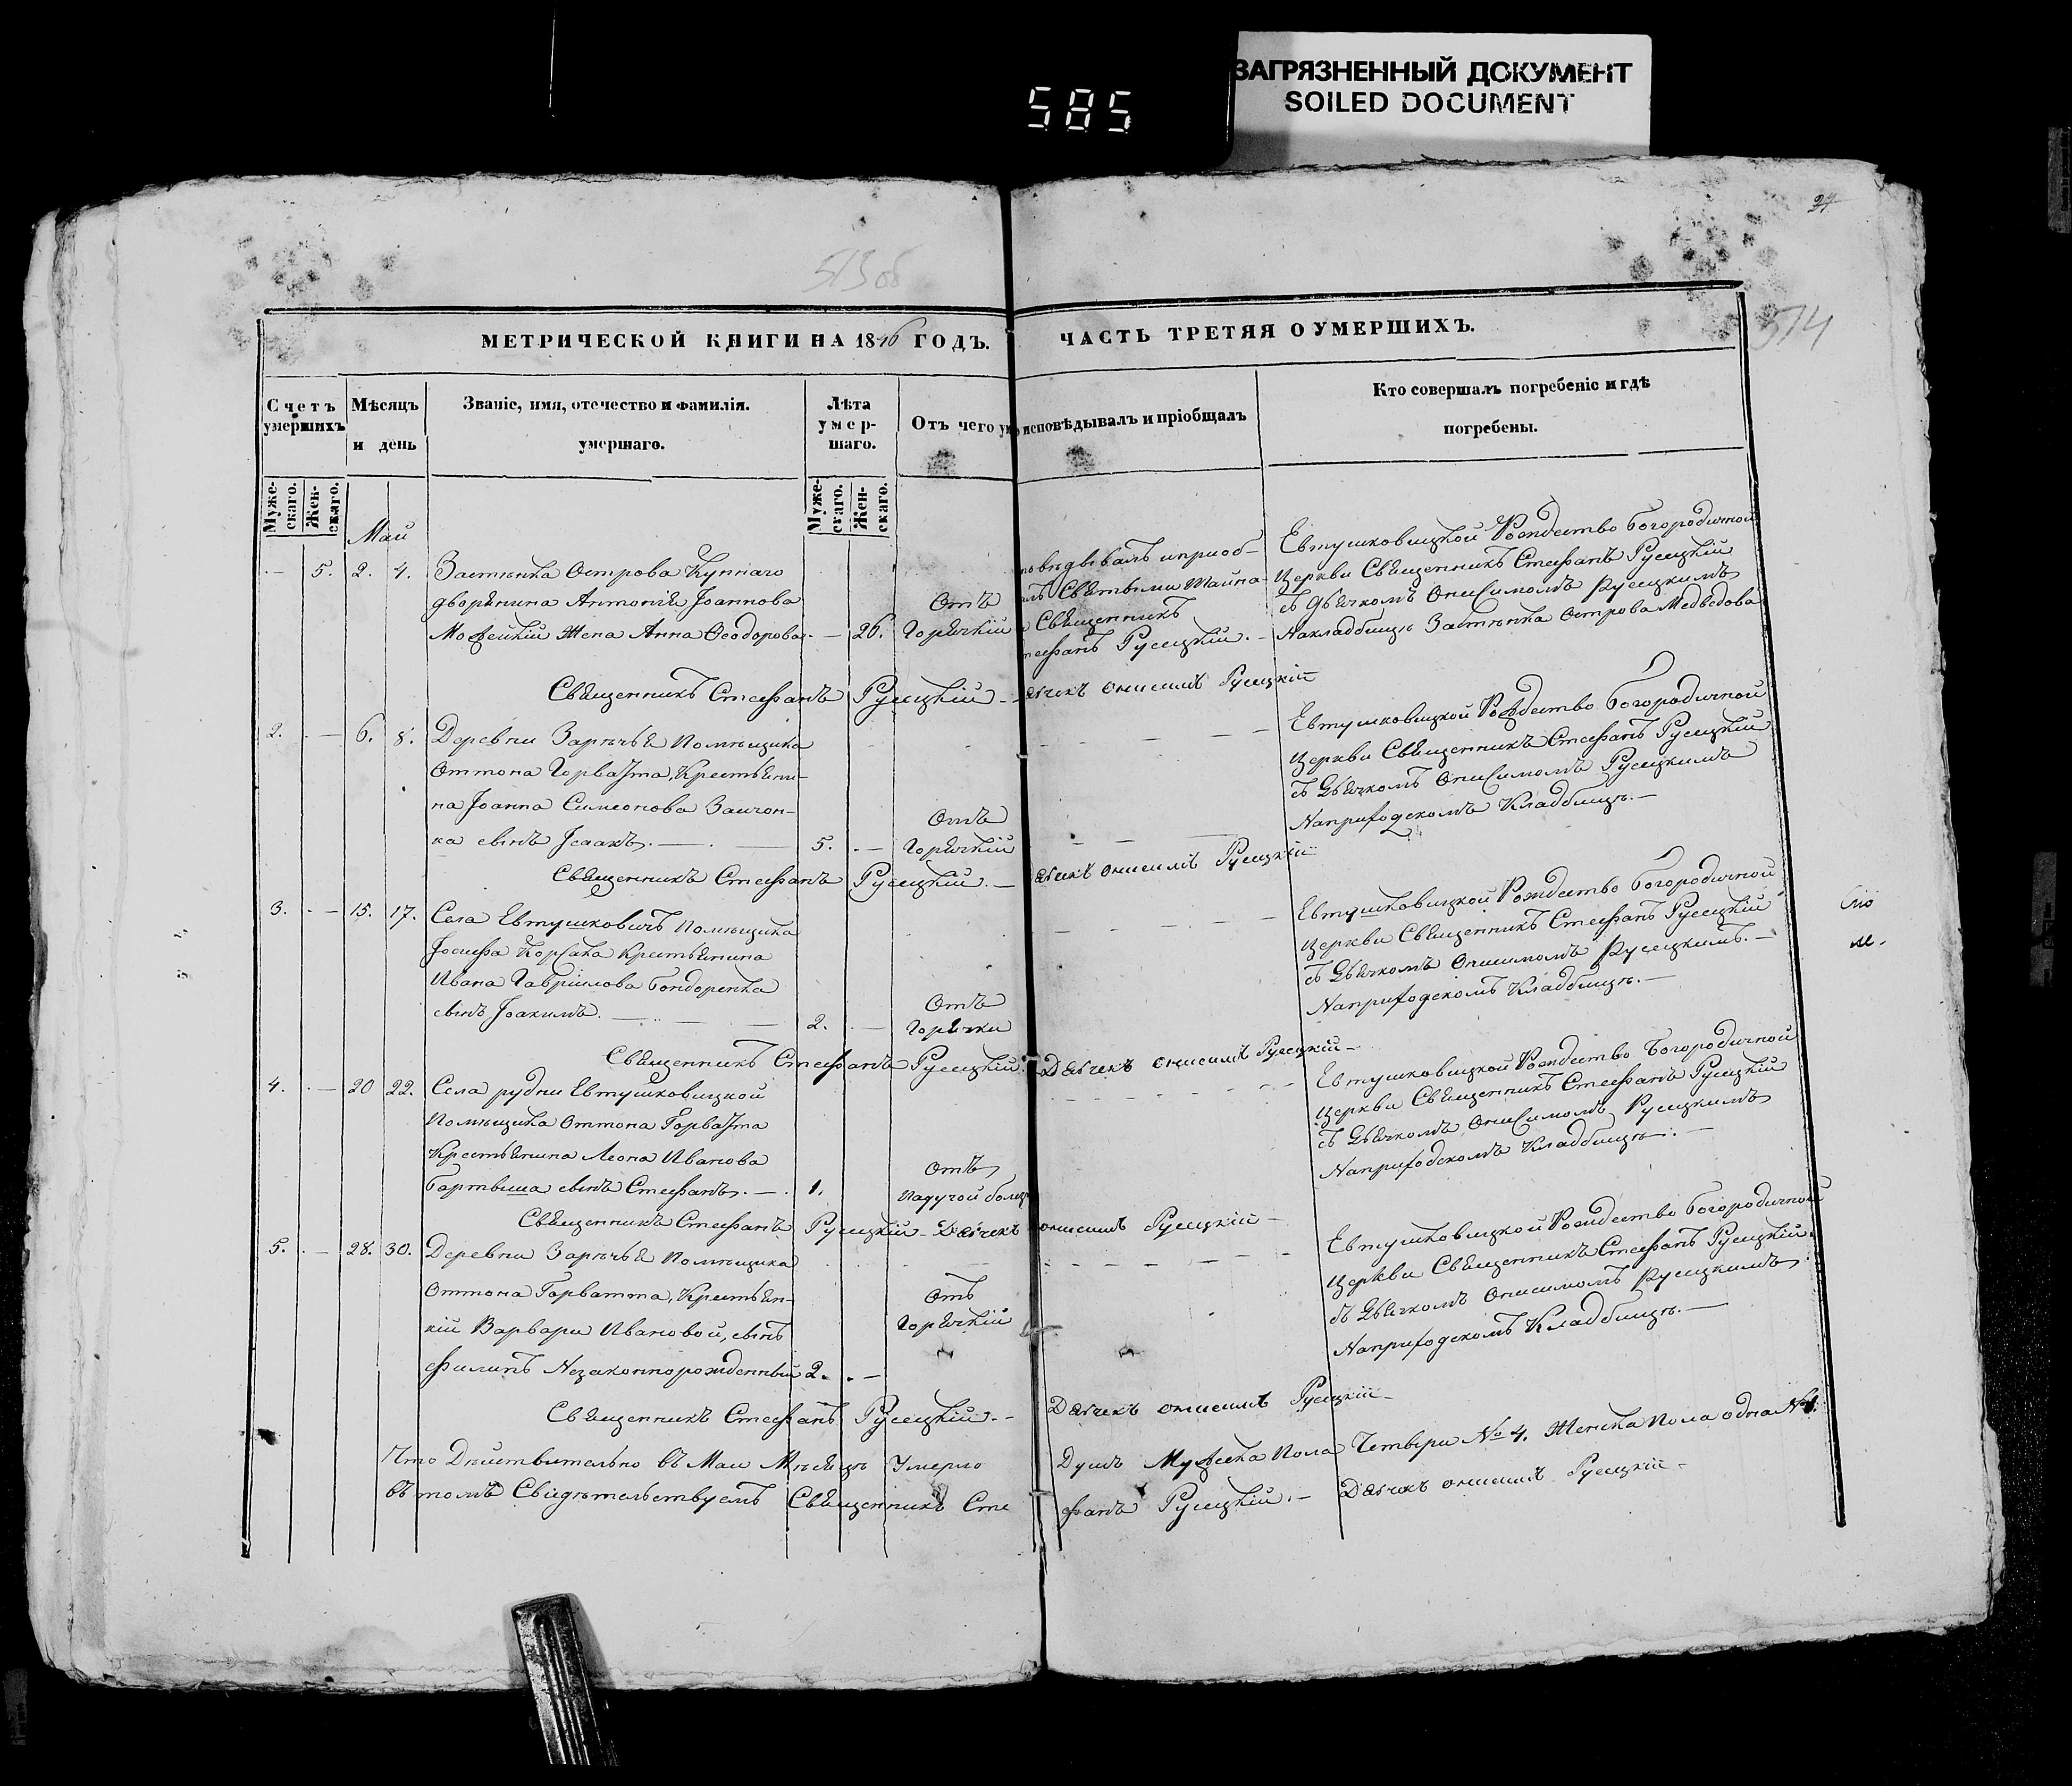 ЗАГРЯЗНЕННЫЙ ДОКУМЕНТ
SOILED DOCUMENT
585
24
513 об
514
МЕТРИЧЕСКОЙ КНИГИ НА 1846 ГОДЪ.
ЧАСТЬ ТРЕТЯЯ О УМЕРШИХЪ.
Счетъ умершихъ
Мѣсяцъ и день
Званіе, имя, отечество и фамилія.
умершаго.
Лѣта умер-шаго.
Отъ чего
исповѣдывалъ и пріобщалъ
Кто совершалъ погребеніе и гдѣ
погребены.
Муже-скаго.
Жен-скаго.
Муже-скаго.
Жен-скаго.
Май
5. 2. 4.
Застѣнка Острова Купнаго
дворянина Антонія Іоаннова
жена Анна Ѳеодорова 26.
Отъ
Горячкій
Священникъ
Русецкій.
Евтушковицкой Рождество Богородичной
Церкви Священникъ Стефанъ Русецкій
съ Дьячкомъ Онисимомъ Русецкимъ
Накладбищѣ Застѣнка Острова Медведова
Священникъ Стефанъ Русецкій Дьячекъ Онисимъ Русецкій
2. 6. 8.
Деревни Зарѣчья Помѣщика
Оттона Горватта, Крестьяни-
на Іоанна Симеонова Заичон-
ка сынъ Ісаакъ. 5.
Отъ
Горячкій
Евтушковицкой Рождество Богородичной
Церкви Священникъ Стефанъ Русецкій
съ Дьячкомъ Онисимомъ Русецкимъ
Наприходскомъ Кладбищѣ.
Священникъ Стефанъ Русецкій. Дьячекъ Онисимъ Русецкій
3. 15. 17.
Села Евтушковичъ Помѣщика
Іосифа Корсака Крестьянина
Ивана Гавріилова Бондоренка
сынъ Іоакимъ. 2.
Отъ
Горячки
Евтушковицкой Рождество Богородичной
Церкви Священникъ Стефанъ Русецкій
съ Дьячкомъ Онисимомъ Русецкимъ.
Наприходскомъ Кладбищѣ.
Священникъ Стефанъ Русецкій. Дьячекъ Онисимъ Русецкій
4. 20 22.
Села рудни Евтушковицкой
Помѣщика Оттона Горватта
Крестьянина Леона Иванова
сынъ Стефанъ. 1.
Отъ
Падучой
Евтушковицкой Рождество Богородичной
Церкви Священникъ Стефанъ Русецкій
съ Дьячкомъ Онисимомъ Русецкимъ
Наприходскомъ Кладбищѣ.
Священникъ Стефанъ Русецкій Дьячекъ Онисимъ Русецкій
5. 28. 30.
Деревни Зарѣчья Помѣщика
Оттона Горватта, Крестьян-
кій Варвари Ивановой, сынъ
Филипъ Незаконнорожденный 2.
Отъ
Горячкій
Евтушковицкой Рождество Богородичной
Церкви Священникъ Стефанъ Русецкій
съ Дьячкомъ Онисимомъ Русецкимъ
Наприходскомъ Кладбищѣ.
Священникъ Стефанъ Русецкій. Дьячекъ Онисимъ Русецкій
Что Дѣйствительно въ Маи Мѣсяцѣ Умерло Душъ Мужеска Пола Четыри № 4. Женска Пола одна №1.
въ томъ Свидѣтельствуемъ Священникъ Стефанъ Русецкій. Дьячекъ Онисимъ Русецкій